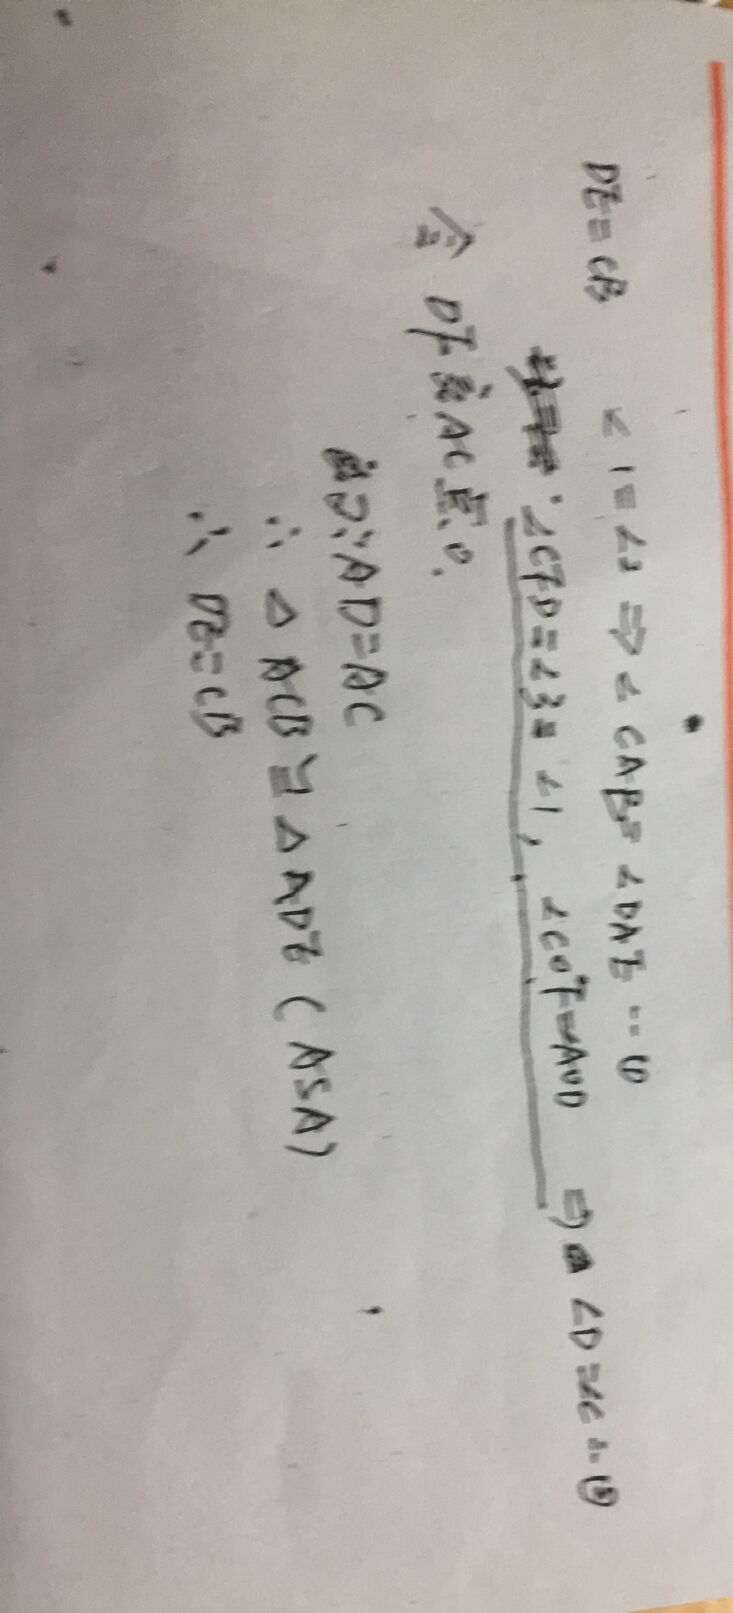 DE=CB
∠1=∠2 ⇒ ∠CAB=∠DAE ··①
∠CFD=∠3=∠1, ∠COF=∠AOD ⇒ ∠D=∠C ··②
令 DF AC 点O.
∵AD=AC
∴ △ACB≌△ADE (ASA)
∴ DE=CB